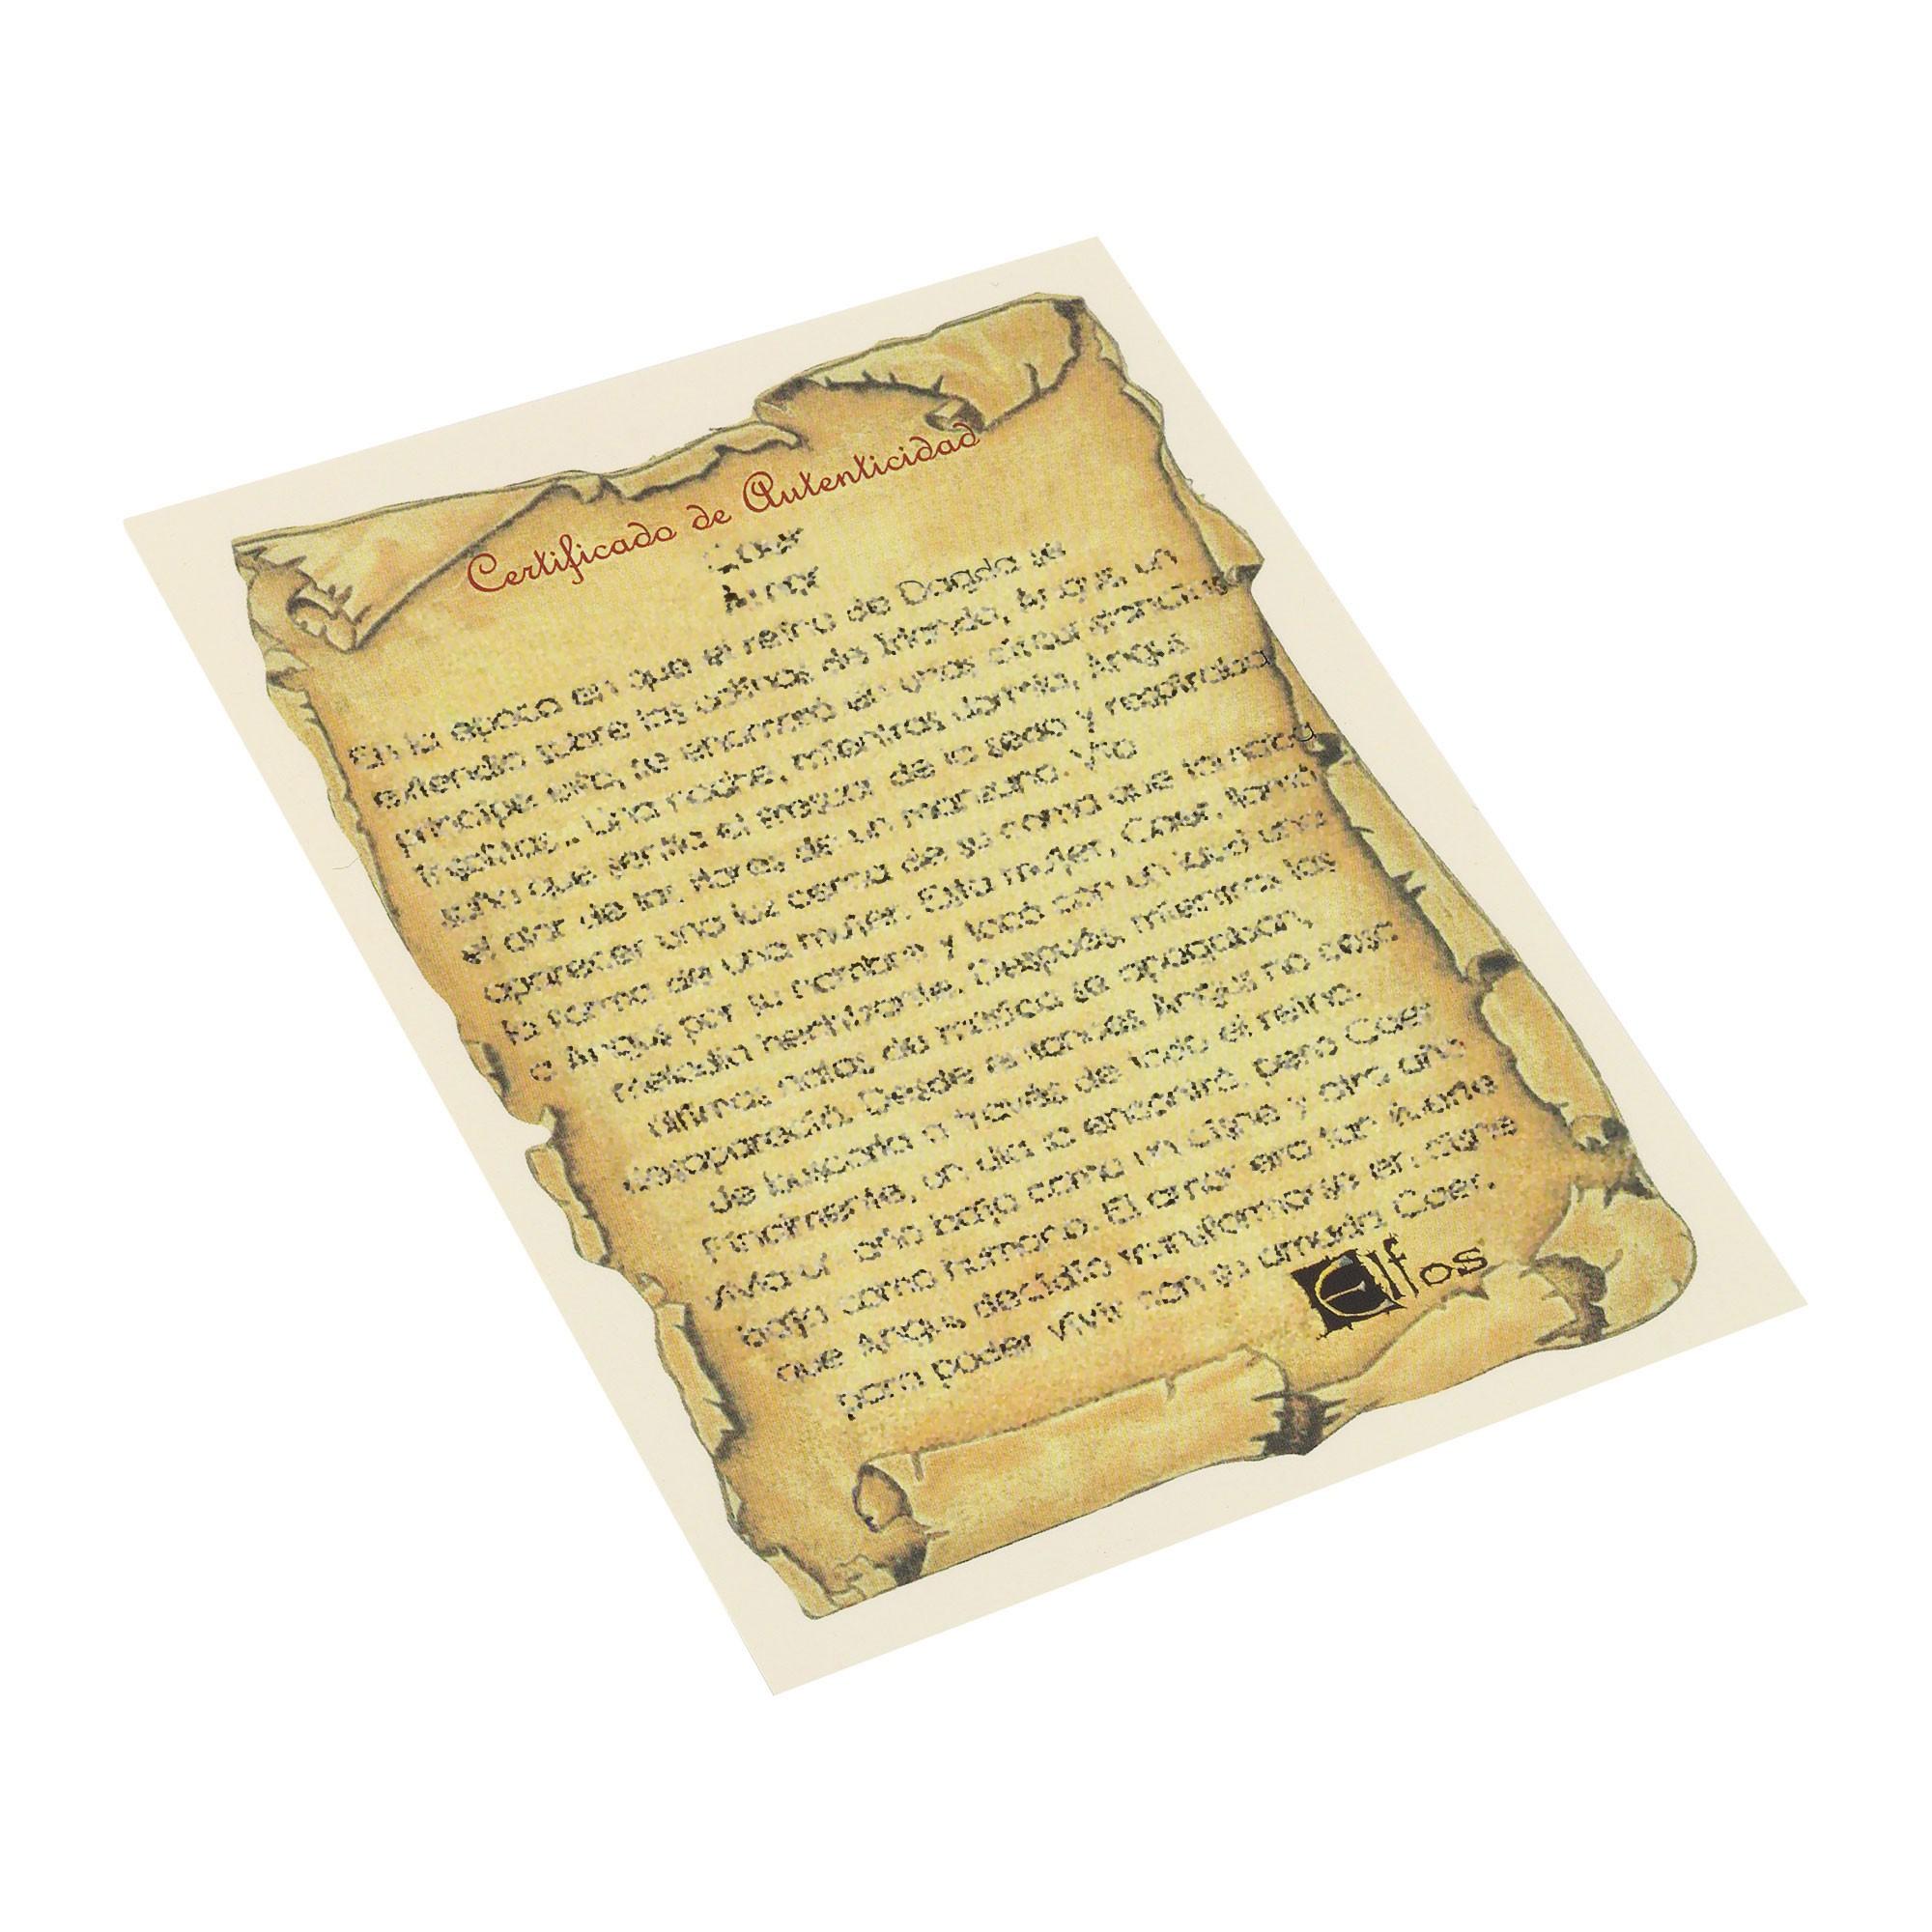 Certificado de Autenticidad
Coer
Amor
En la epoca en que el reino de Dagda se
extendia sobre las colinas de Irlanda, Angus, un
principe elfo, se enamoró en unas circunstancias
insolitas.. Una noche, mientras dormia, Angus
soño que sentia el frescor de la seda y respiraba
el olor de las flores de un manzano. Vio
aparecer una luz cerca de su cama que tomaba
la forma de una mujer. Esta mujer, Coer, llamó
a Angus por su nombre y tocó con un laud una
melodia hechizante. Después, mientras las
ultimas notas de música se apagaban,
desapareció. Desde entonces Angus no cesó
de buscarla a través de todo el reino.
Finalmente, un dia la encontró, pero Coer
vivia un año bajo como un cisne y otro año
bajo como humano. El amor era tan fuerte
que Angus decidio transformarse en cisne
para poder vivir con su amada Coer.
Elfos